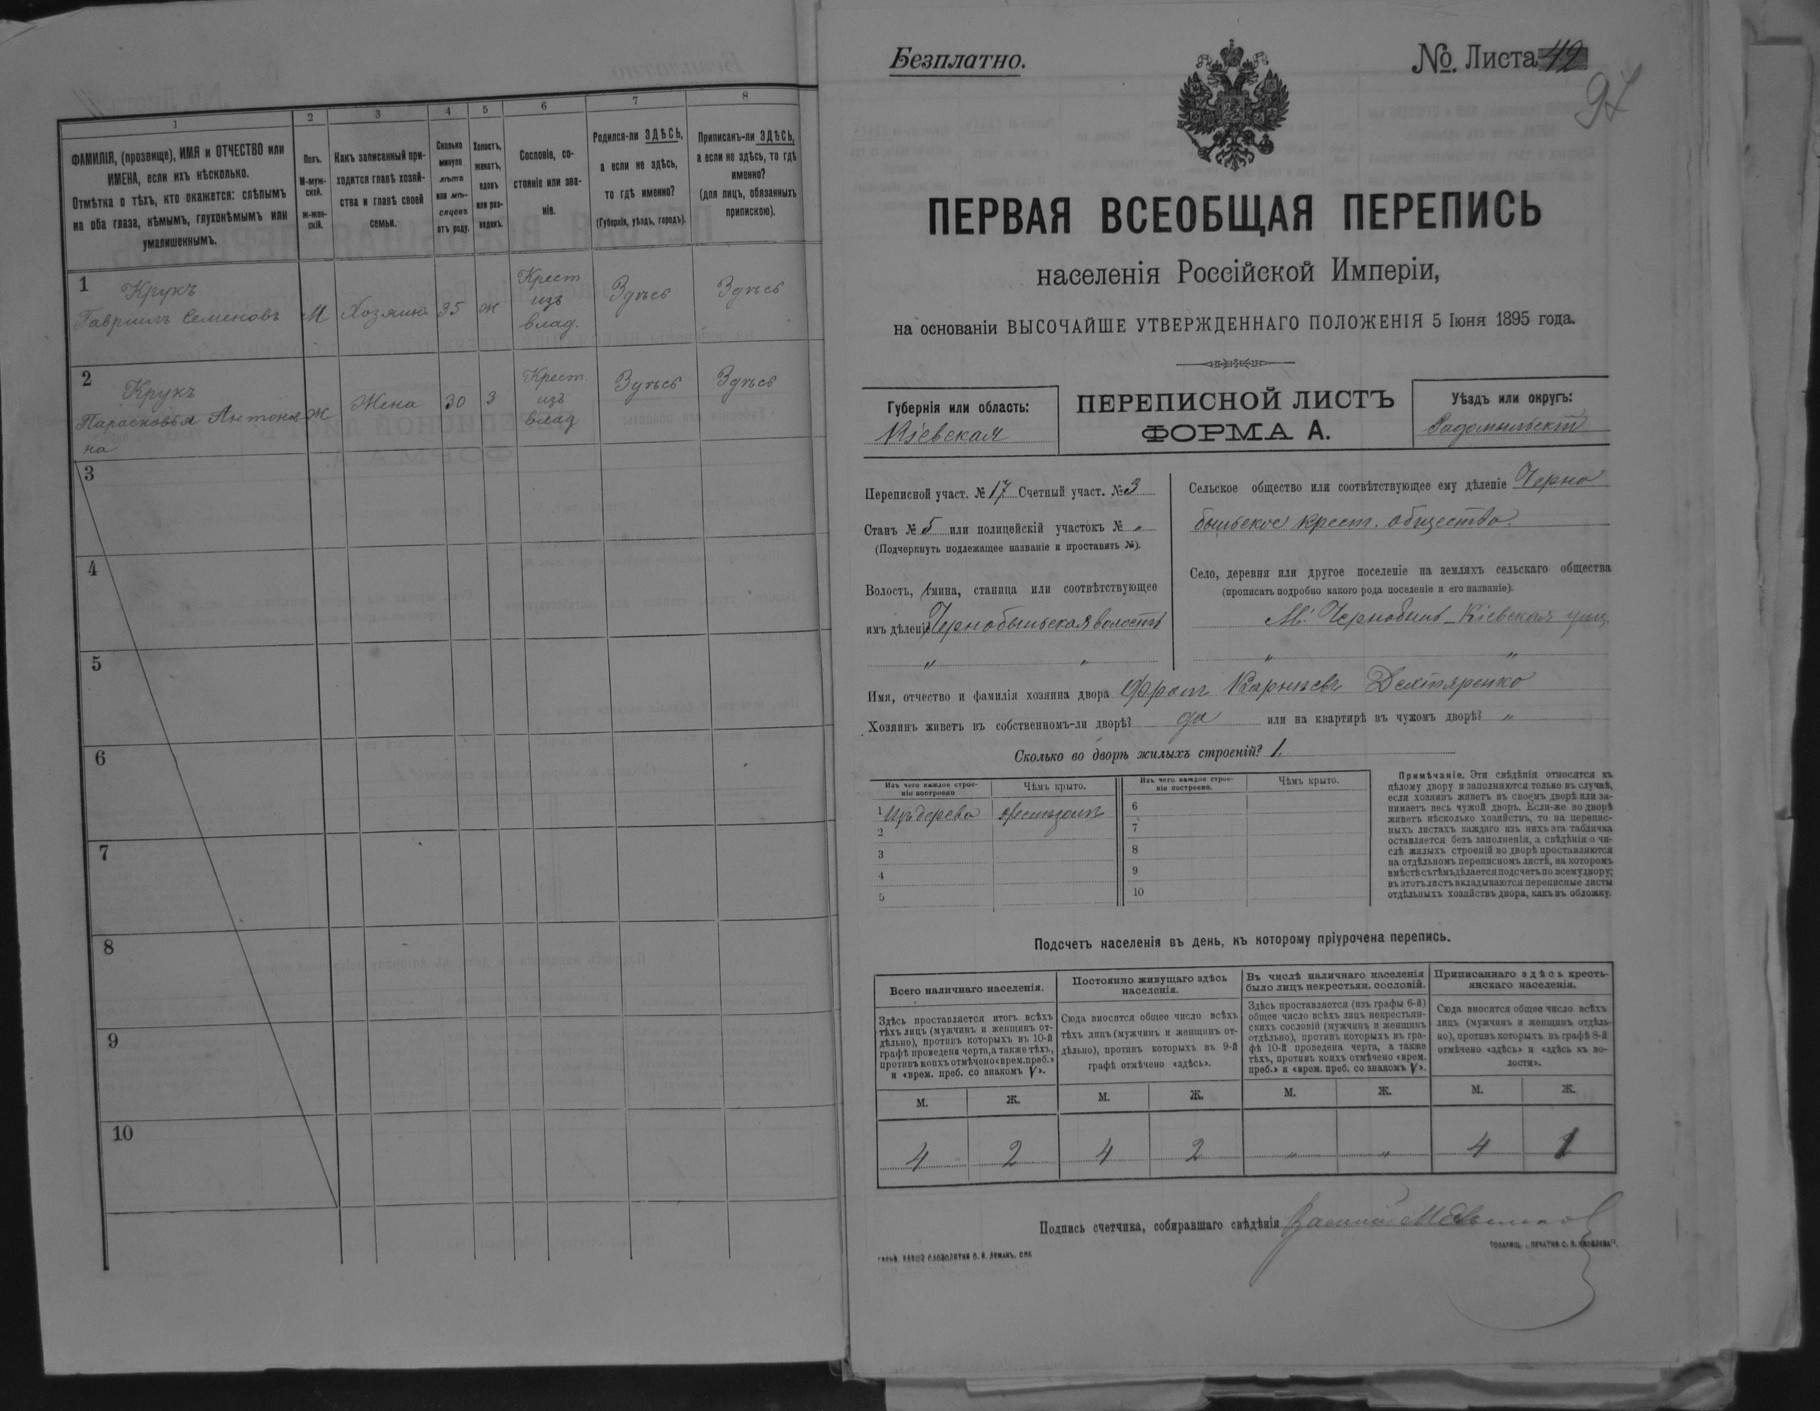 1
2
3
4
5
6
7
8
ФАМИЛІЯ, (прозвище), ИМЯ и ОТЧЕСТВО или
ИМЕНА, если ихъ нѣсколько.
Отмѣтка о тѣхъ, кто окажется: слѣпымъ
на оба глаза, нѣмымъ, глухонѣмымъ или
умалишеннымъ.
Полъ.
М-муж-
ской.
Ж-жен-
скій.
Какъ записанный при-
ходится главѣ хозяй-
ства и главѣ своей
семьи.
Сколько
минуло
лѣтъ
или мѣ-
сяцевъ
отъ роду.
Холостъ,
женатъ,
вдовъ
или раз-
веденъ.
Сословіе, со-
стояніе или зва-
ніе.
Родился-ли ЗДѢСЬ,
а если не здѣсь,
то гдѣ именно?
(Губернія, уѣздъ, городъ).
Приписанъ-ли ЗДѢСЬ,
а если не здѣсь, то гдѣ
именно?
(для лицъ, обязанныхъ
припискою).
1
Крукъ
Гавріилъ Семеновъ
М
Хозяинъ
35
ж
Крест
изъ
влад.
Здѣсь
Здѣсь
2
Крукъ
Парасковья Антоно
на
Ж
Жена
30
З
Крест.
изъ
влад
Здѣсь
Здѣсь
3
4
5
6
7
8
9
10
Безплатно.
№ Листа 42
97
ПЕРВАЯ ВСЕОБЩАЯ ПЕРЕПИСЬ
населенія Россійской Имперіи,
на основаніи ВЫСОЧАЙШЕ УТВЕРЖДЕННАГО ПОЛОЖЕНІЯ 5 Іюня 1895 года.
Губернія или область:
Кіевская
ПЕРЕПИСНОЙ ЛИСТЪ
ФОРМА А.
Уѣздъ или округъ:
Радомыльскій
Переписной участ. № 17 Счетный участ. № 3
Станъ № 5 или полицейскій участокъ № „
(Подчеркнуть подлежащее названіе и проставить №).
Волость, гмина, станица или соотвѣтствующее
имъ дѣленіе Чернобыльская волость
„ „
Сельское общество или соотвѣтствующее ему дѣленіе Черно
быльское крест. общество.
Село, деревня или другое поселеніе на земляхъ сельскаго общества
(прописать подробно какого рода поселеніе и его названіе).
М. Чернобыль Кіевская улиц.
„ „
Имя, отчество и фамилія хозяина двора Фролъ Карнѣевъ Дехтяренко
Хозяинъ живетъ въ собственномъ-ли дворѣ? да или на квартирѣ въ чужомъ дворѣ? „
Сколько во дворѣ жилыхъ строеній? 1.
Изъ чего каждое строе-
ніе построено
Чѣмъ крыто.
Изъ чего каждое строе-
ніе построено.
Чѣмъ крыто.
1 Изъ дерева
2
3
4
5
6
7
8
9
10
Примѣчаніе. Эти свѣдѣнія относятся къ
цѣлому двору и заполняются только въ случаѣ,
если хозяинъ живетъ въ своемъ дворѣ или за-
нимаетъ весь чужой дворъ. Если-же во дворѣ
живетъ нѣсколько хозяйствъ, то на перепис-
ныхъ листахъ каждаго изъ нихъ эта табличка
оставляется безъ заполненія, а свѣдѣнія о чи-
слѣ жилыхъ строеній во дворѣ проставляются
на отдѣльномъ переписномъ листѣ, на которомъ
вмѣстѣ съ тѣмъ дѣлается подсчетъ по всему двору;
въ этотъ листъ вкладываются переписные листы
отдѣльныхъ хозяйствъ двора, какъ въ обложку.
Подсчетъ населенія въ день, къ которому пріурочена перепись.
Всего наличнаго населенія.
Постоянно живущаго здѣсь
населенія.
Въ числѣ наличнаго населенія
было лицъ некрестьян. сословій.
Приписаннаго здѣсь кресть-
янскаго населенія.
Здѣсь проставляется итогъ всѣхъ
тѣхъ лицъ (мужчинъ и женщинъ от-
дѣльно), противъ которыхъ въ 10-й
графѣ проведена черта, а также тѣхъ,
противъ коихъ отмѣчено «врем. преб.»
и «врем. преб. со знакомъ V».
Сюда вносится общее число всѣхъ
тѣхъ лицъ (мужчинъ и женщинъ от-
дѣльно), противъ которыхъ въ 9-й
графѣ отмѣчено «здѣсь».
Здѣсь проставляется (изъ графы 6-й)
общее число всѣхъ лицъ некрестьян-
скихъ сословій (мужчинъ и женщинъ
отдѣльно), противъ которыхъ въ гра-
фѣ 10-й проведена черта, а также
тѣхъ, противъ коихъ отмѣчено «врем.
преб.» и «врем. преб. со знакомъ V».
Сюда вносится общее число всѣхъ
лицъ (мужчинъ и женщинъ отдѣль-
но), противъ которыхъ въ графѣ 8-й
отмѣчено «здѣсь» и «здѣсь къ во-
лости».
М. Ж. М. Ж. М. Ж. М. Ж.
4 2 4 2 „ „ 4
Подпись счетчика, собиравшаго свѣдѣнія